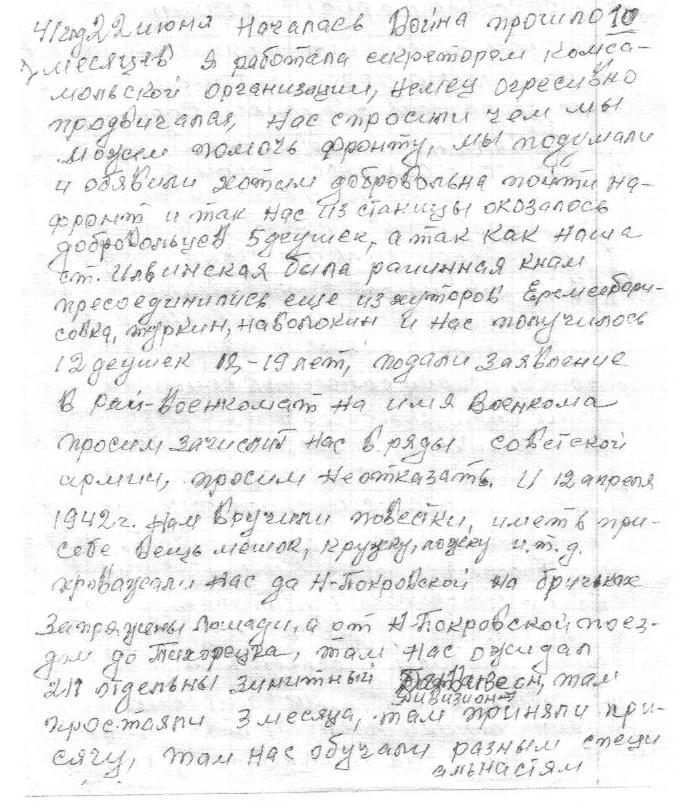 41 год 22 июня началась война прошло 10
месяцев я работала секреторем комса-
мольской организации, немец огресивно
продвигался, нас спросили чем мы
можем помочь фронту, мы подумали
и обявили хотим добровольна пойти на-
фронт и так нас из станицы оказалось
добровольцев 5 деушек, а так как наша
ст. Илвинская была раионная кнам
пресоединились еще из хуторов Еремеебори-
совка, туркин, наволокин и нас получилось
12 деушек 18-19 лет, подали заявление
в рай-военкомат на имя Военкома
просим зачислит нас в ряды советской
армии, просим неотказать. И 12 апреля
1942 г. нам вручили повестки, иметь при-
себе вещь мешок, кружку, ложку и.т.д.
проважали нас да Н-Покровской на бричьках
запряжены лошади, а от Н-Покровской поез-
дом до Тихорецка, там нас ожидал
отдельны зинитный дивизион, там
простаяли 3 месяца, там приняли при-
сягу, там нас обучали разным специ
альнастям